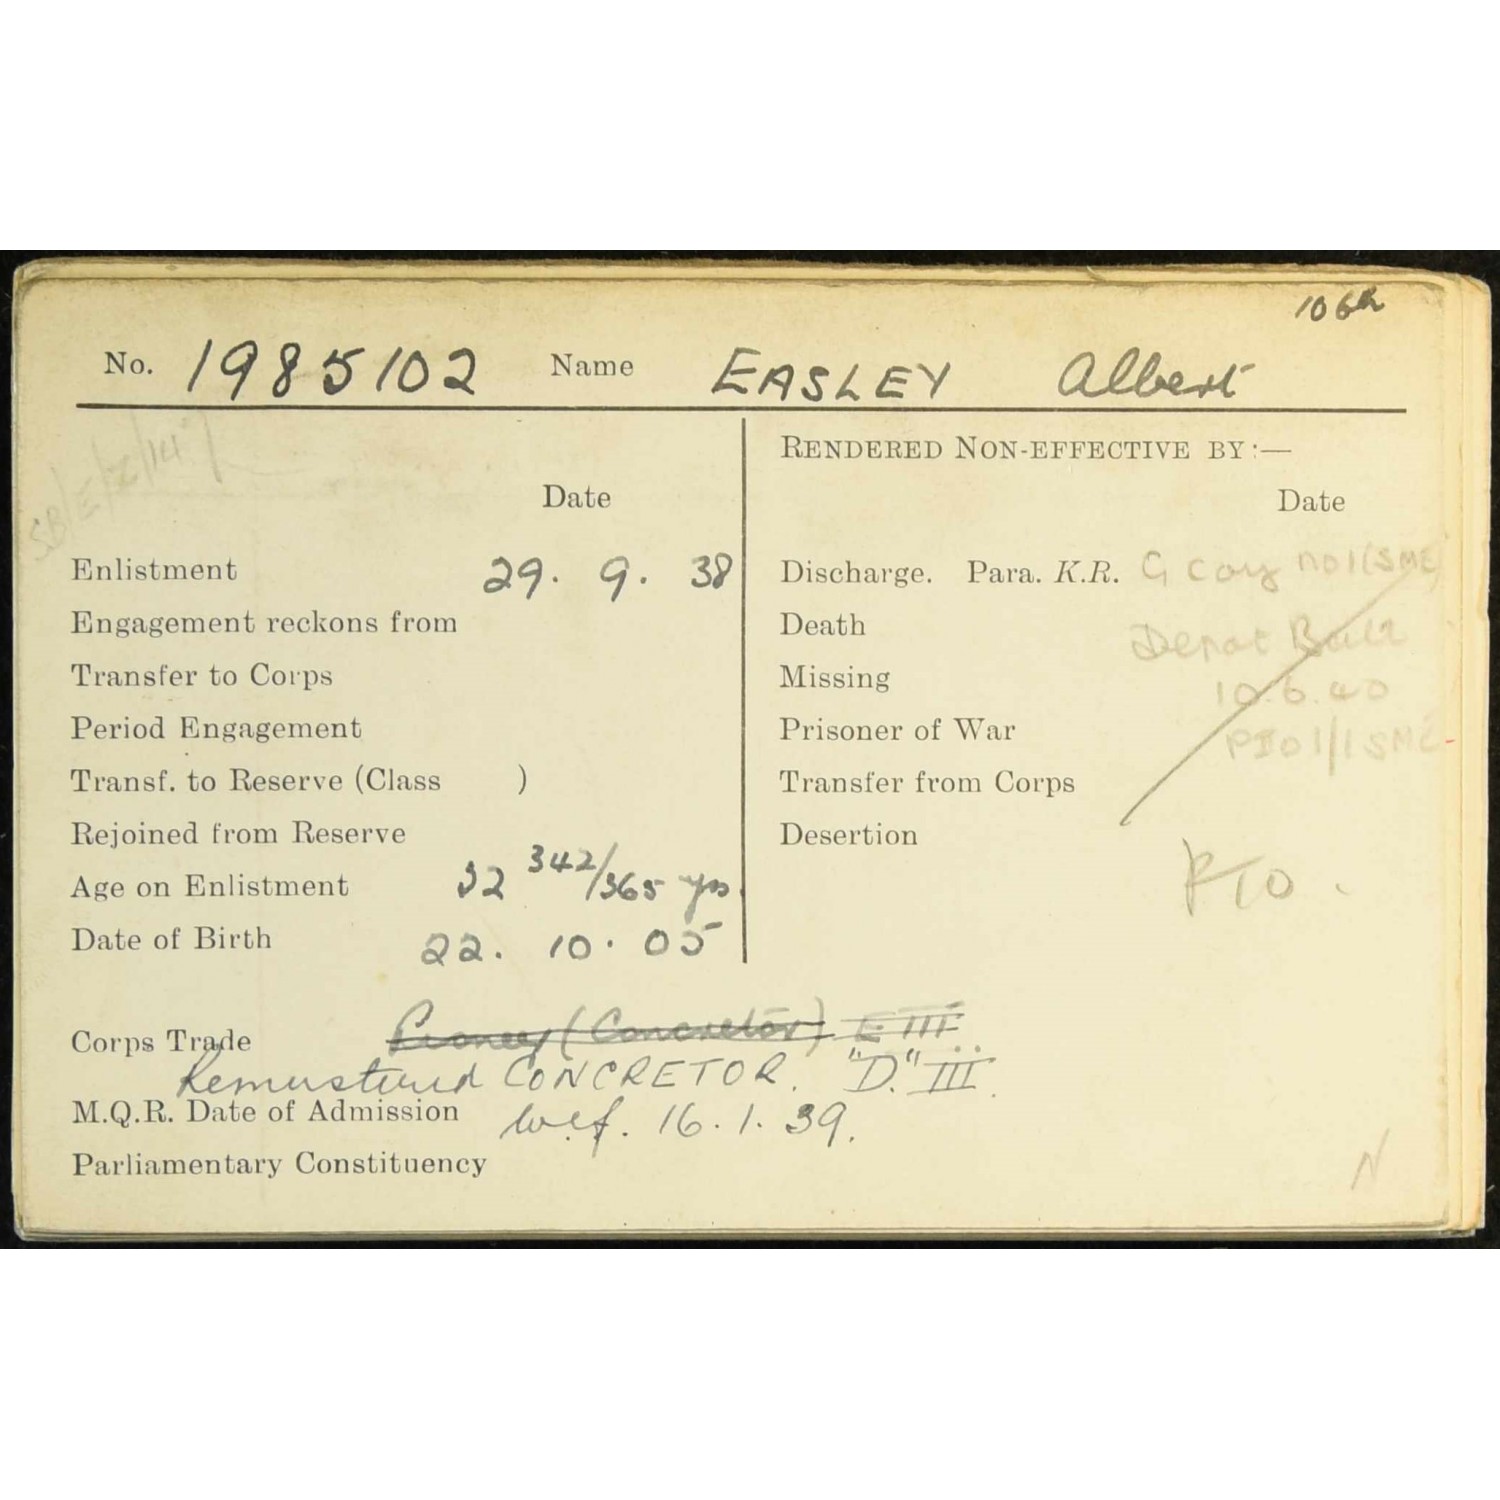 106th
No. 1985102 Name EASLEY Albert
RENDERED NON-EFFECTIVE BY:—
SB/E/2/14
Date
Date
Enlistment 29. 9. 38
Discharge. Para. K.R. G Coy no1(SME)
Engagement reckons from
Death
Depot Batt
Transfer to Corps
Missing
10.6.40
Period Engagement
Prisoner of War
/1 SME
Transf. to Reserve (Class )
Transfer from Corps
Rejoined from Reserve
Desertion
Age on Enlistment 32 342/365 yrs.
PTO.
Date of Birth 22. 10. 05
Corps Trade Pioneer (Concretor) E III
Remustered CONCRETOR. "D." III.
M.Q.R. Date of Admission w.e.f. 16. 1. 39.
Parliamentary Constituency
N